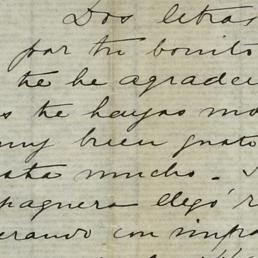 Dos letras
por tu bonito
te he agradec
s te hayas mo
muy buen gusto
sta mucho.
pañera llegó
erando con impa